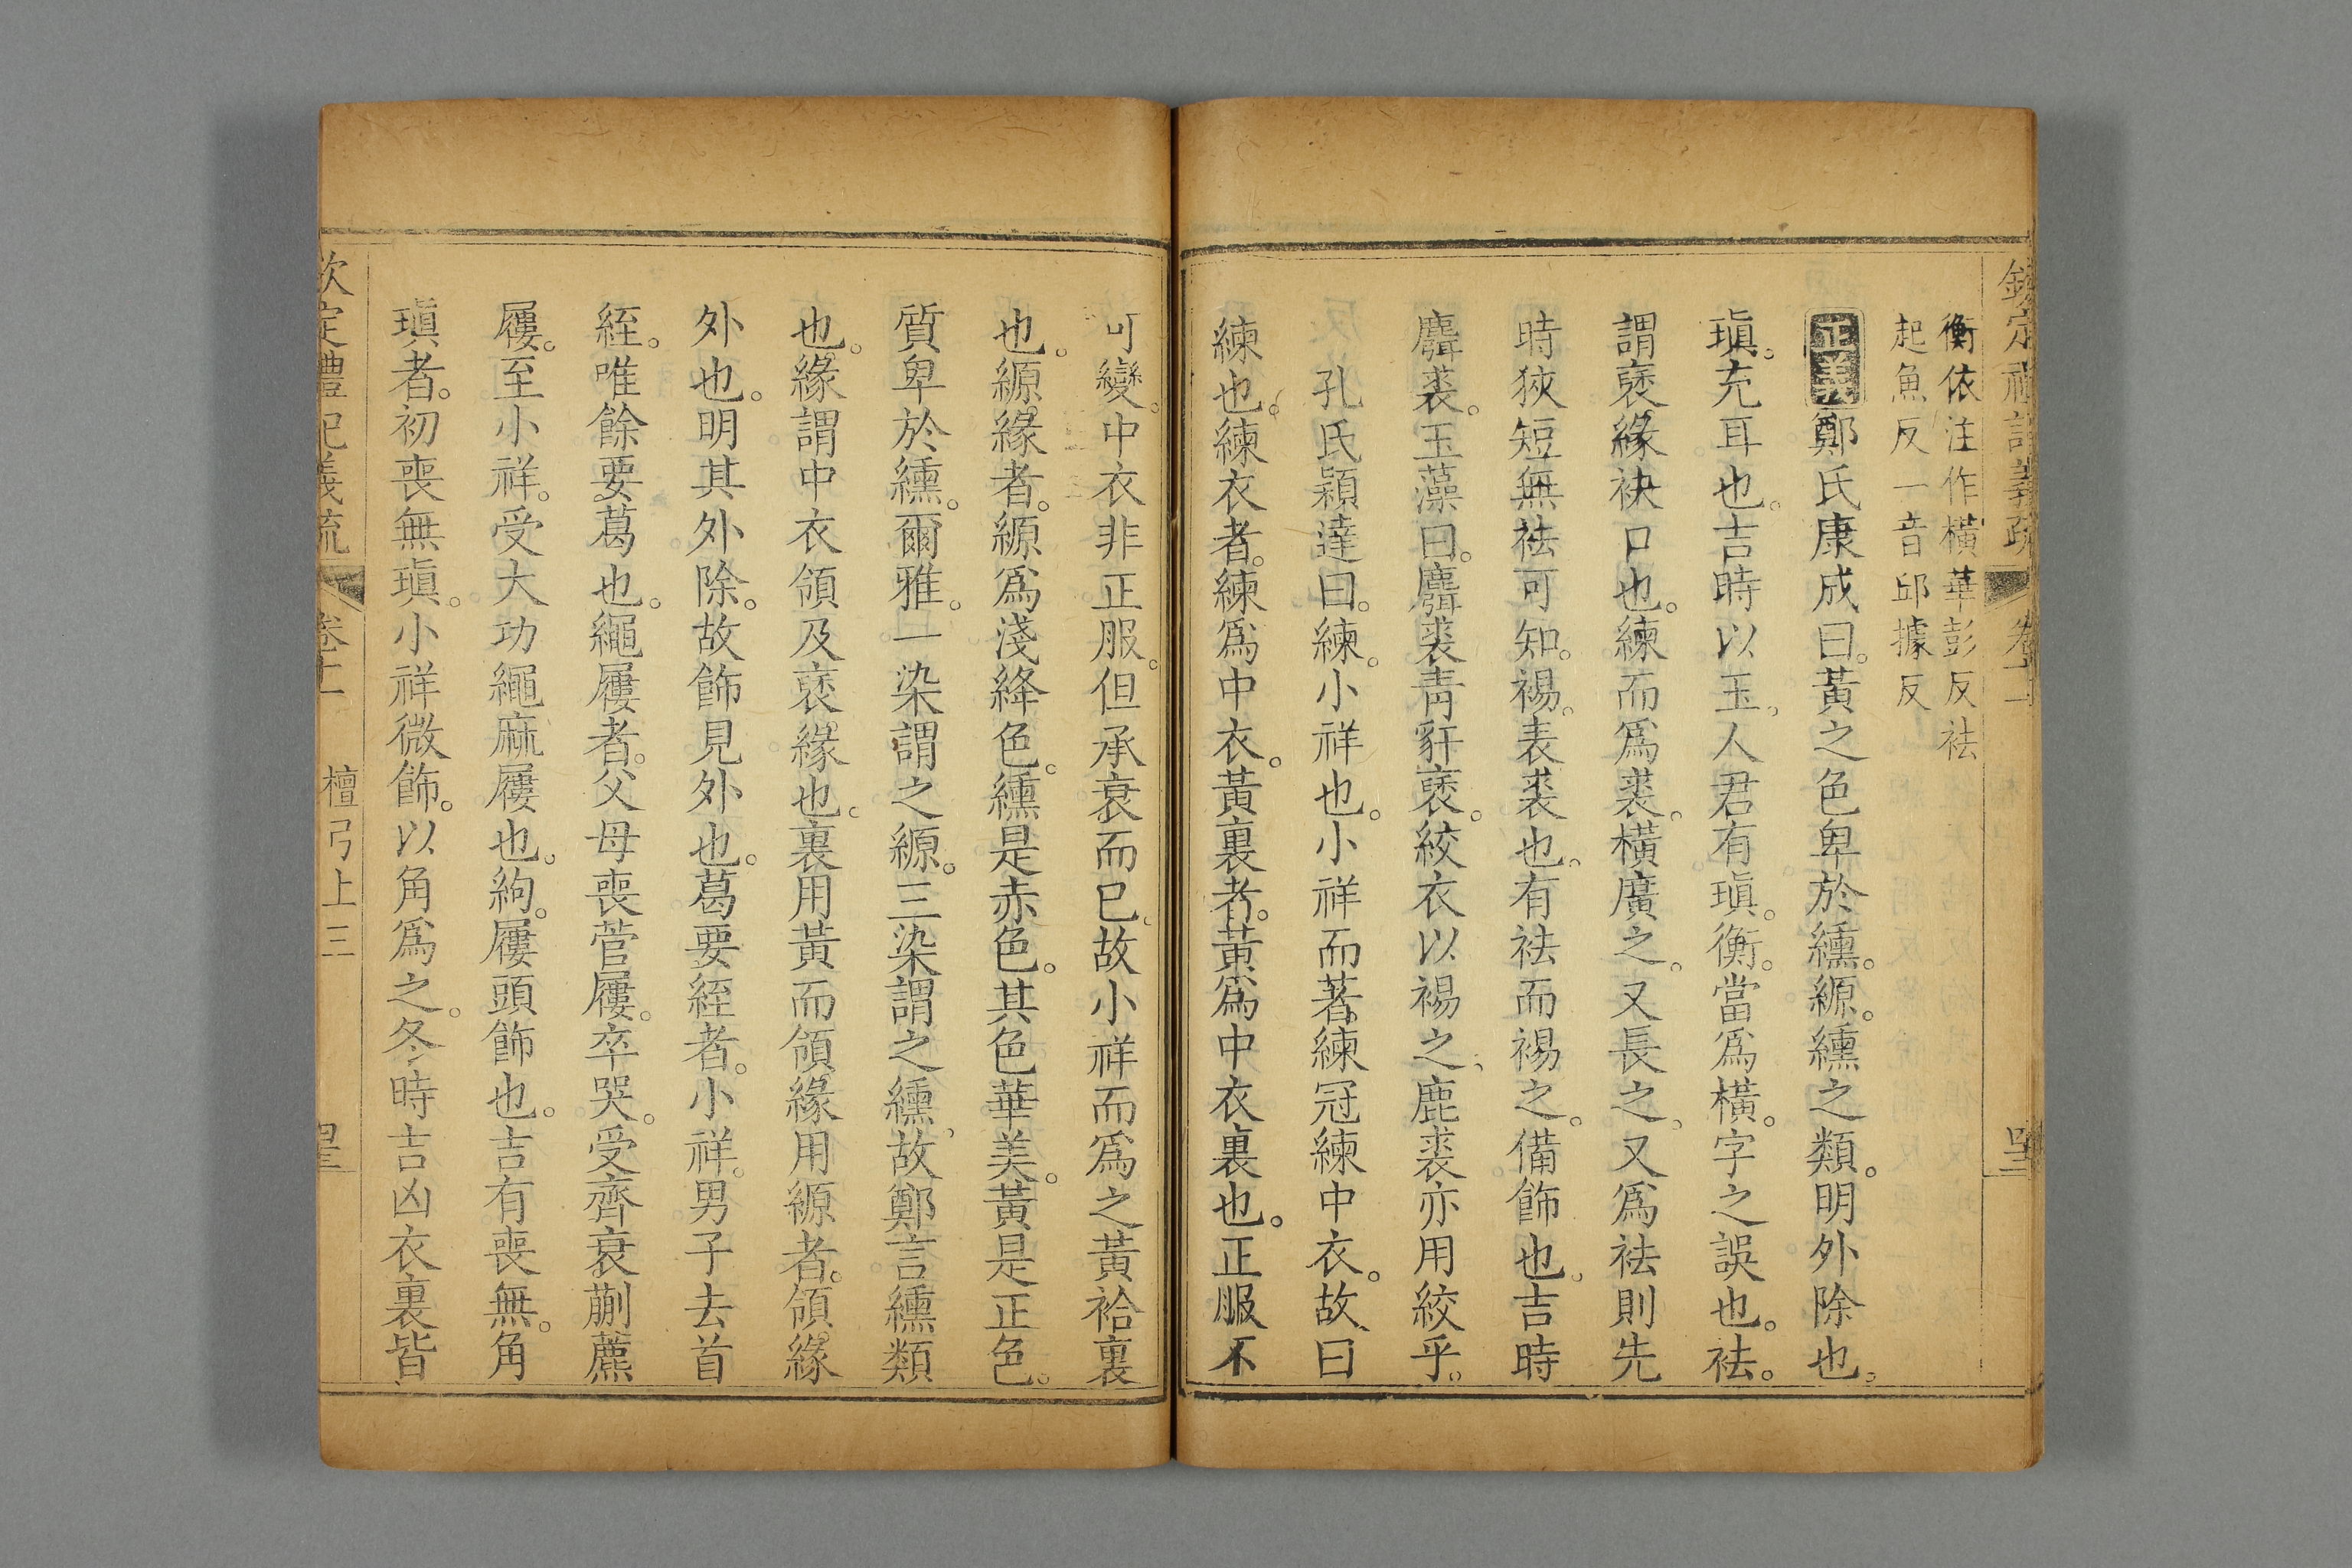 欽定禮記義疏 卷十一 四十二
衡依注作橫華彭反袪
起魚反一音邱據反
正義鄭氏康成曰。黃之色卑於纁。縓。纁之類。明外除也。
瑱。充耳也。吉時以玉。人君有瑱。衡。當爲橫。字之誤也。袪。
謂褎緣袂口也。練而爲裘。橫廣之。又長之。又爲袪則先
時狹短無袪可知。裼。表裘也。有袪而裼之。備飾也。吉時
麛裘。玉藻曰。麛裘青豻褎。絞衣以裼之。鹿裘亦用絞乎。
孔氏穎達曰。練。小祥也。小祥而著練冠練中衣。故曰
練也。練衣者。練爲中衣。黃裏者。黃爲中衣裏也。正服不
可變。中衣非正服。但承衰而已。故小祥而爲之黃袷裏
也。縓緣者。縓爲淺絳色。纁是赤色。其色華美。黃是正色。
質卑於纁。爾雅。一染謂之縓。三染謂之纁。故鄭言纁類
也。緣謂中衣領及褎緣也。裏用黃而領緣用縓者。領緣
外也。明其外除。故飾見外也。葛要絰者。小祥。男子去首
絰。唯餘要葛也。繩屨者。父母喪菅屨。卒哭。受齊衰蒯藨
屨。至小祥。受大功繩麻屨也。絇。屨頭飾也。吉有喪無。角
瑱者。初喪無瑱。小祥微飾。以角爲之。冬時吉凶衣裏皆
欽定禮記義疏 卷十一 檀弓上三 四十三